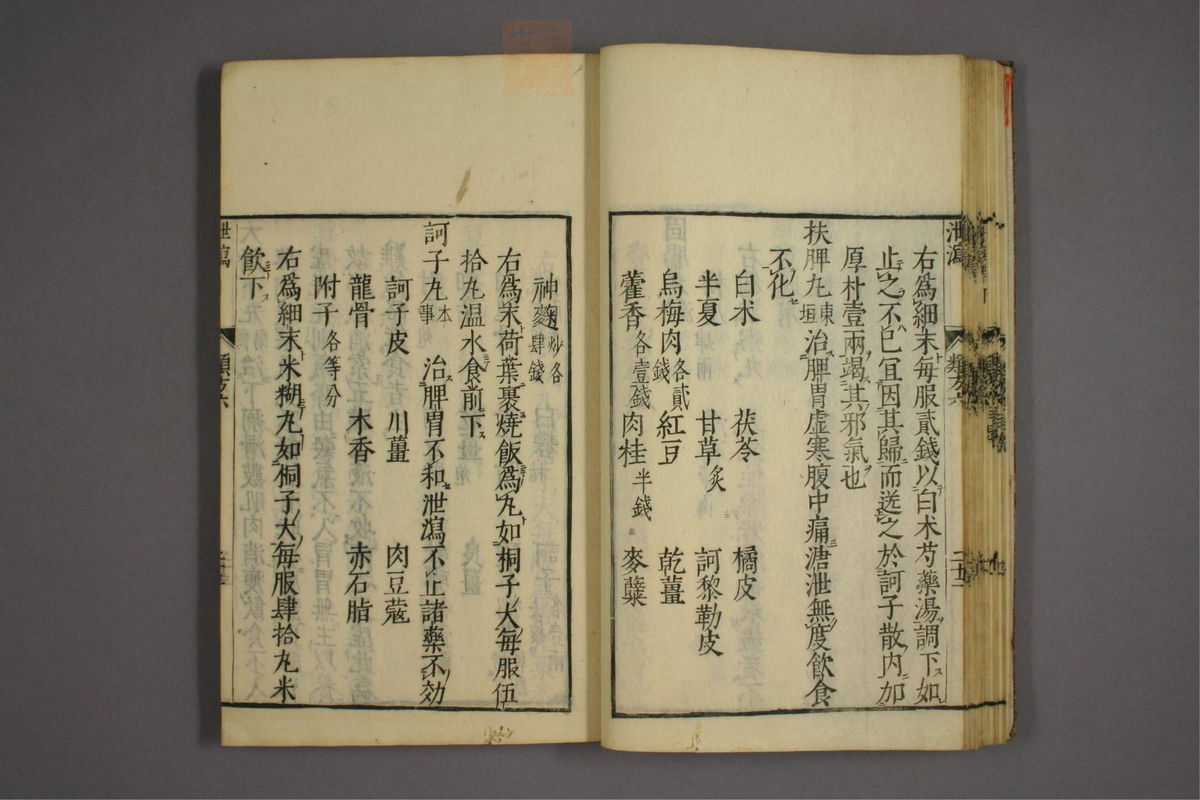 泄瀉
類方六
二十五
右爲細末毎服貳錢以白术芍藥湯調下如
止之不已宜因其歸而送之於訶子散内加
厚朴壹兩竭其邪氣也
扶脾丸東垣治脾胃虛寒腹中痛溏泄無度飲食
不化
白术 茯苓 橘皮
半夏 甘草炙 訶黎勒皮
烏梅肉各貳錢 紅豆 乾薑
藿香各壹錢 肉桂半錢 麥蘖
神麴炒各肆錢
右爲末荷葉裹燒飯爲丸如桐子大毎服伍
拾丸温水食前下
訶子丸本事 治脾胃不和泄瀉不止諸藥不効
訶子皮 川薑 肉豆蔻
龍骨 木香 赤石脂
附子各等分
右爲細末米糊丸如桐子大毎服肆拾丸米
飲下
泄瀉
類方六